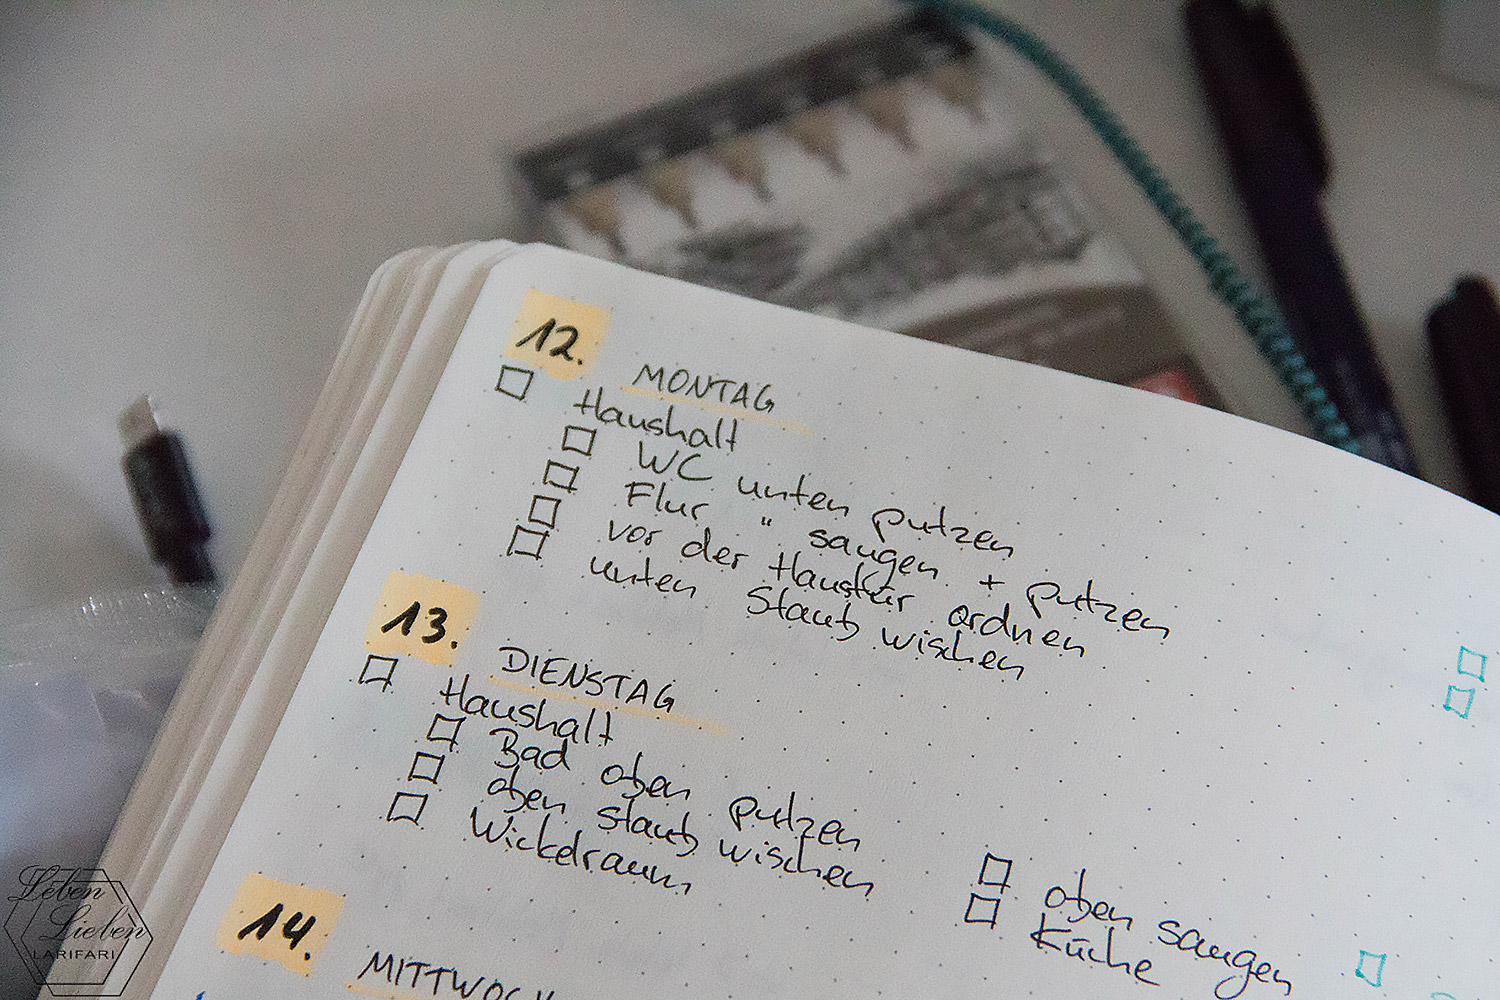 12.
MONTAG
Haushalt
WC unten putzen
Flur " saugen + putzen
vor der Haustür ordnen
unten Staub wischen
13.
DIENSTAG
Haushalt
Bad oben putzen
oben Staub wischen
Wickelraum
oben saugen
Küche
14.
MITTWOCH
Leben
Lieben
LARIFARI